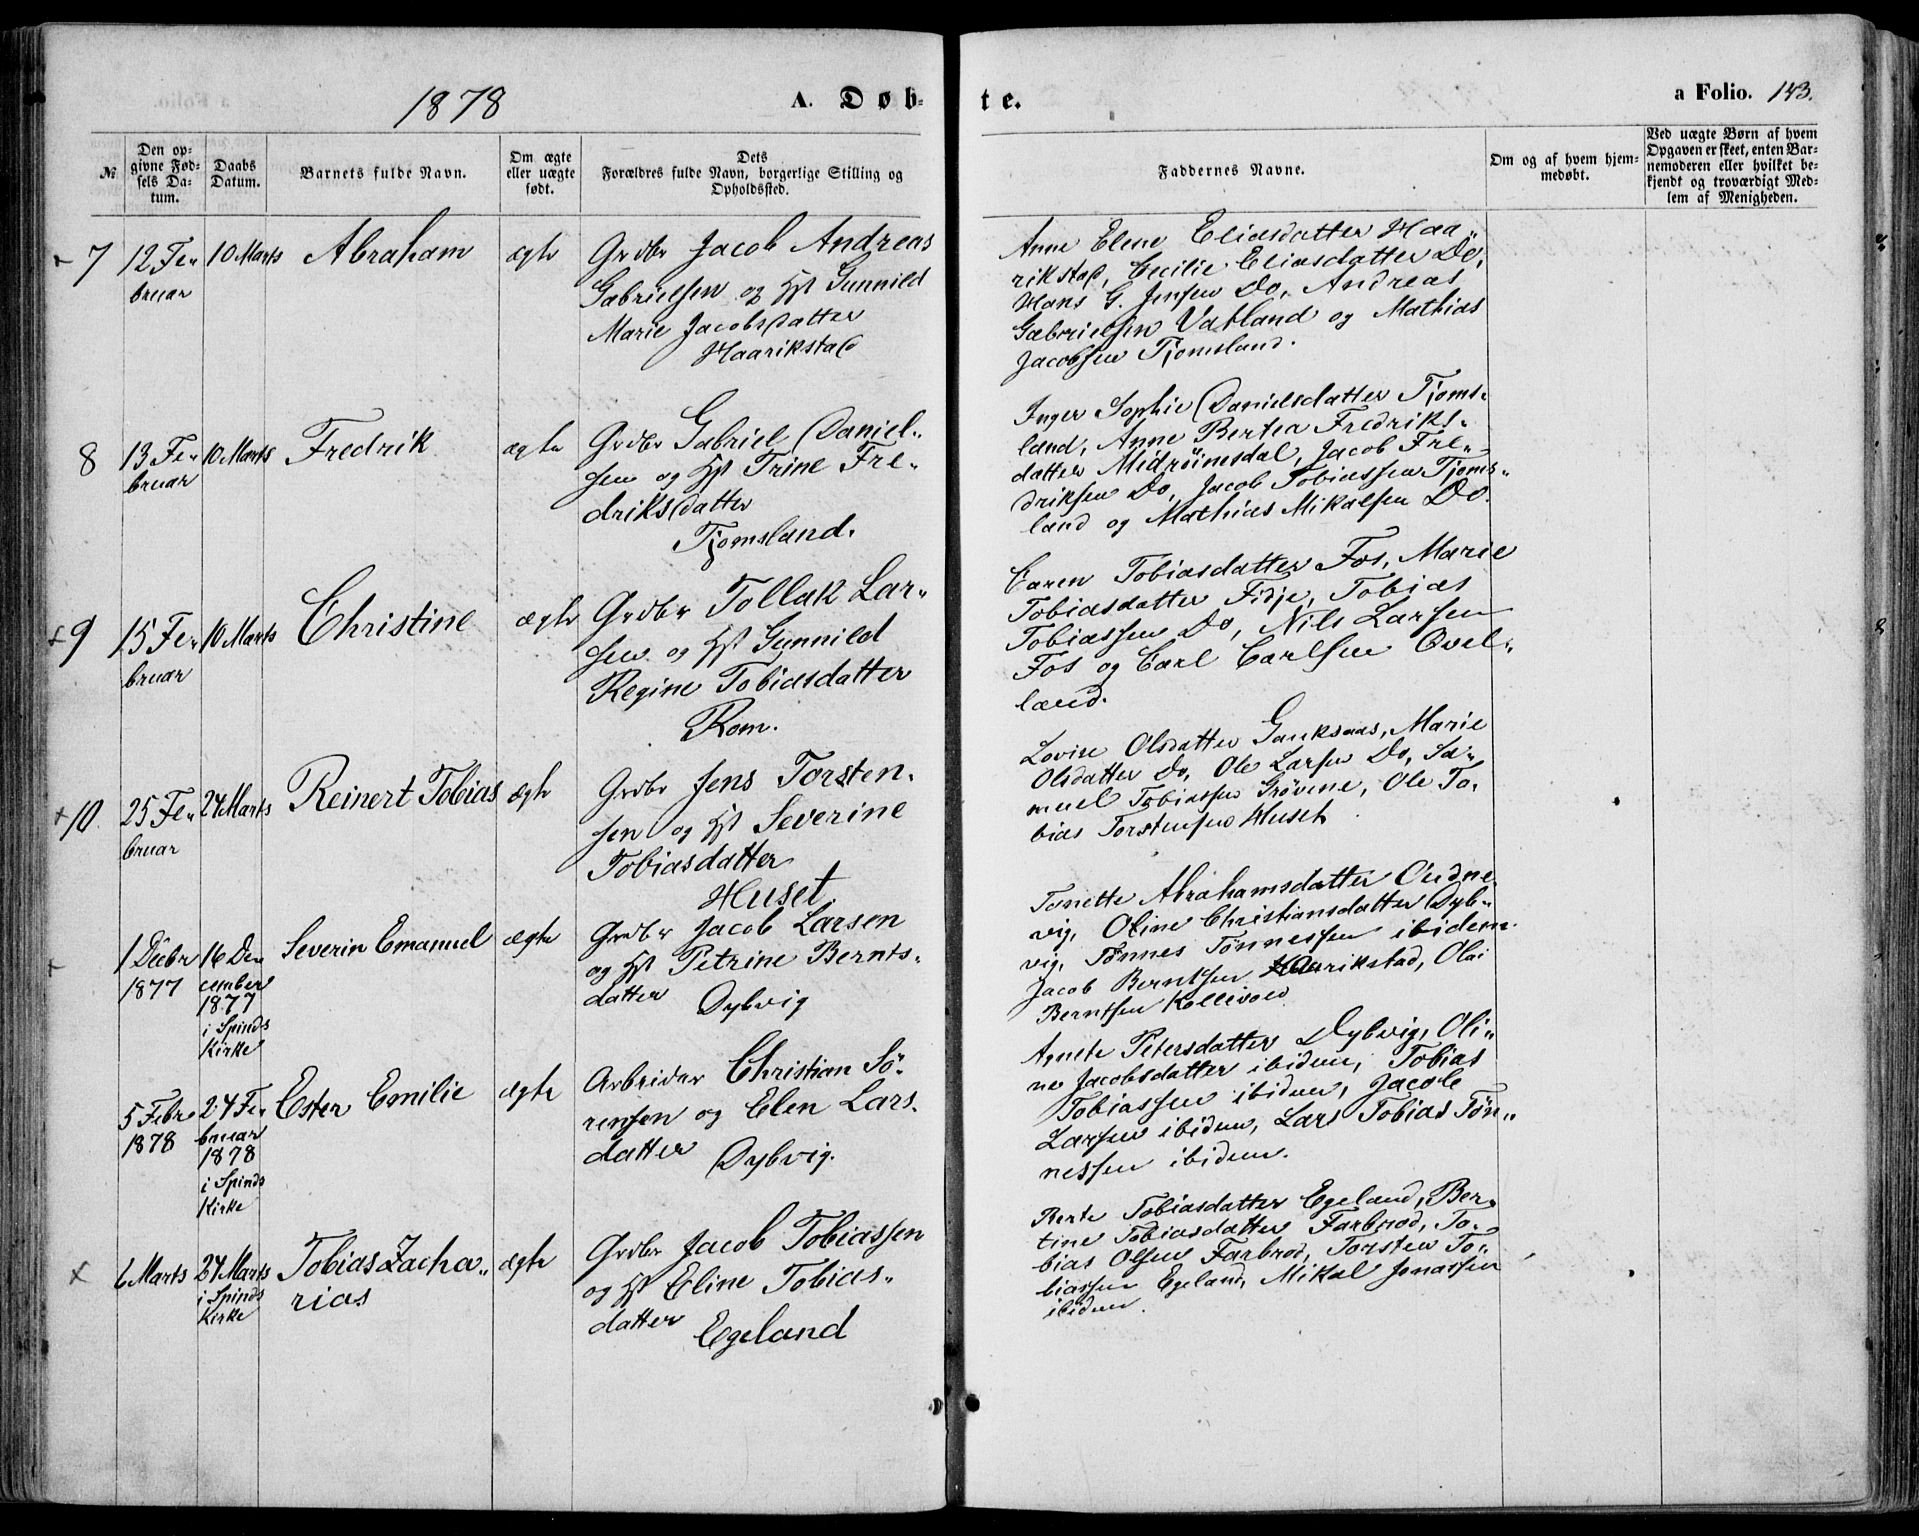 1878
A. Døb-
te.
a Folio. 143.
№
Den op-
givne Fød-
sels Da-
tum.
Daabs
Datum.
Barnets fulde Navn.
Om ægte
eller uægte
født.
Dets
Forældres fulde Navn, borgerlige Stilling og
Opholdssted.
Faddernes Navne.
Om og af hvem hjem-
medøbt.
Ved uægte Børn af hvem
Opgaven er skeet, enten Bar-
nemoderen eller hvilket be-
kjendt og troværdigt Med-
lem af Menigheden.
7
12 Fe-
bruar
10 Marts
Abraham
ægte
Grdbr Jacob Andreas
Gabrielsen og Hst Gunnild
Marie Jacobsdatter
Haarikstad
Anne Elene Eliasdatter Haa-
rikstad, Cecilie Eliasdatter Do,
Hans G. Jensen Do, Andreas
Gabrielsen Vatland og Mathias
Jacobsen Tjomsland.
8
13 Fe-
bruar
10 Marts
Fredrik
ægte
Grdbr Gabriel Daniel-
sen og Hst Trine Fre-
driksdatter
Tjomsland.
Inger Sophie Danielsdatter Tjoms-
land, Anne Bertea Fredriks-
datter Midröinesdal, Jacob Fre-
driksen Do, Jacob Tobiassen Tjoms-
land og Mathias Mikalsen Do.
+9
15 Fe-
bruar
10 Marts
Christine
ægte
Grdbr Tollak Lar-
sen og Hst Gunnild
Regine Tobiasdatter
Rom.
Caren Tobiasdatter Fos, Marie
Tobiasdatter Fidje, Tobias
Tobiassen Do, Nils Larsen
Fos og Carl Carlsen Qvel-
land.
+10.
25 Fe-
bruar
24 Marts
Reinert Tobias
ægte
Grdbr Jens Torsten-
sen og Hst Severine
Tobiasdatter
Huset
Lovise Olsdatter Gauksaas, Marie
Olsdatter Do, Ole Larsen Do, Sa-
muel Tobiassen Grövene, Ole To-
bias Torstensen Huset
+
1 Decbr
1877
16 De-
cember
1877
i Spinds
Kirke
Severin Emanuel
ægte
Grdbr Jacob Larsen
og Hst Petrine Bernts-
datter Dybvig
Tonette Abrahamsdatter Oudne
vig, Oline Christiansdatter Dyb-
vig, Tønnes Tønnessen ibidem
Jacob Berntsen Haarikstad, Olai
Berntsen Kollevold
5 Febr
1878
24 Fe-
bruar
1878
i Spinds
Kirke
Ester Emilie
ægte
Arbeider Christian Sö-
rensen og Elen Lars-
datter Dybvig.
Agnete Petersdatter Dybvig, Oli-
ne Jacobsdatter ibidem, Tobias
Tobiassen ibidem, Jacob
Larsen ibidem, Lars Tobias Tøn-
nessen ibidem.
x
6 Marts
24 Marts
i Spinds
Kirke
Tobias Zacha-
rias
ægte
Grdbr Jacob Tobiassen
og Hst Eline Tobias-
datter
Egeland
Berte Tobiasdatter Egeland, Ber-
tine Tobiasdatter Farbrod, To-
bias Olsen Farbrod, Torsten To-
biassen Egeland, Mikal Jonassen
ibidem.